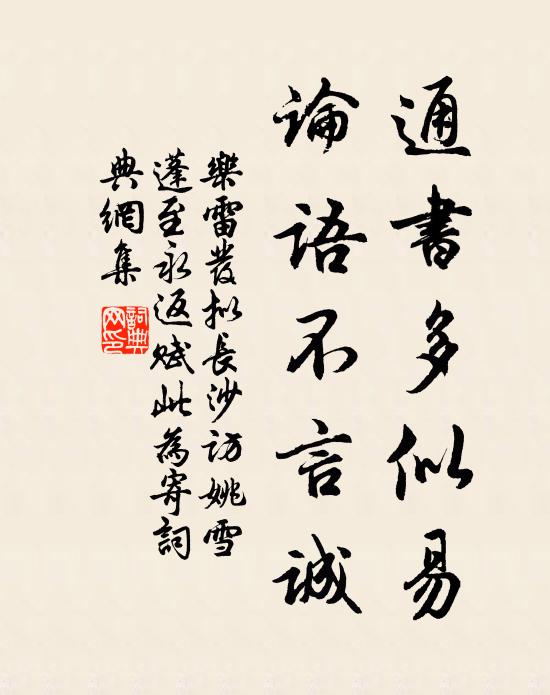 通書多似易
論語不言誠
樂雷發拟長沙訪姚雪
蓬至永返赋此為寄詞
典網集
詞典网印